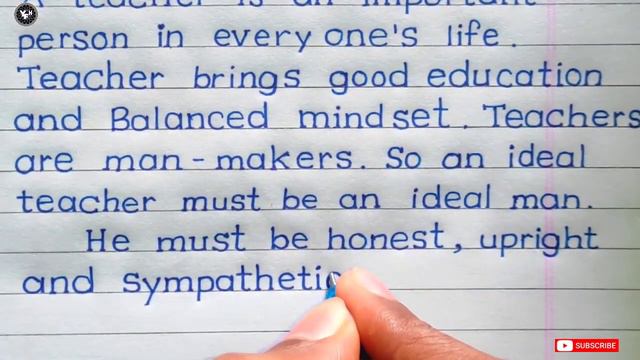 A teacher is an important
person in every one's life.
Teacher brings good education
and Balanced mindset. Teachers
are man-makers. So an ideal
teacher must be an ideal man.
He must be honest, upright
and sympathetic
SUBSCRIBE